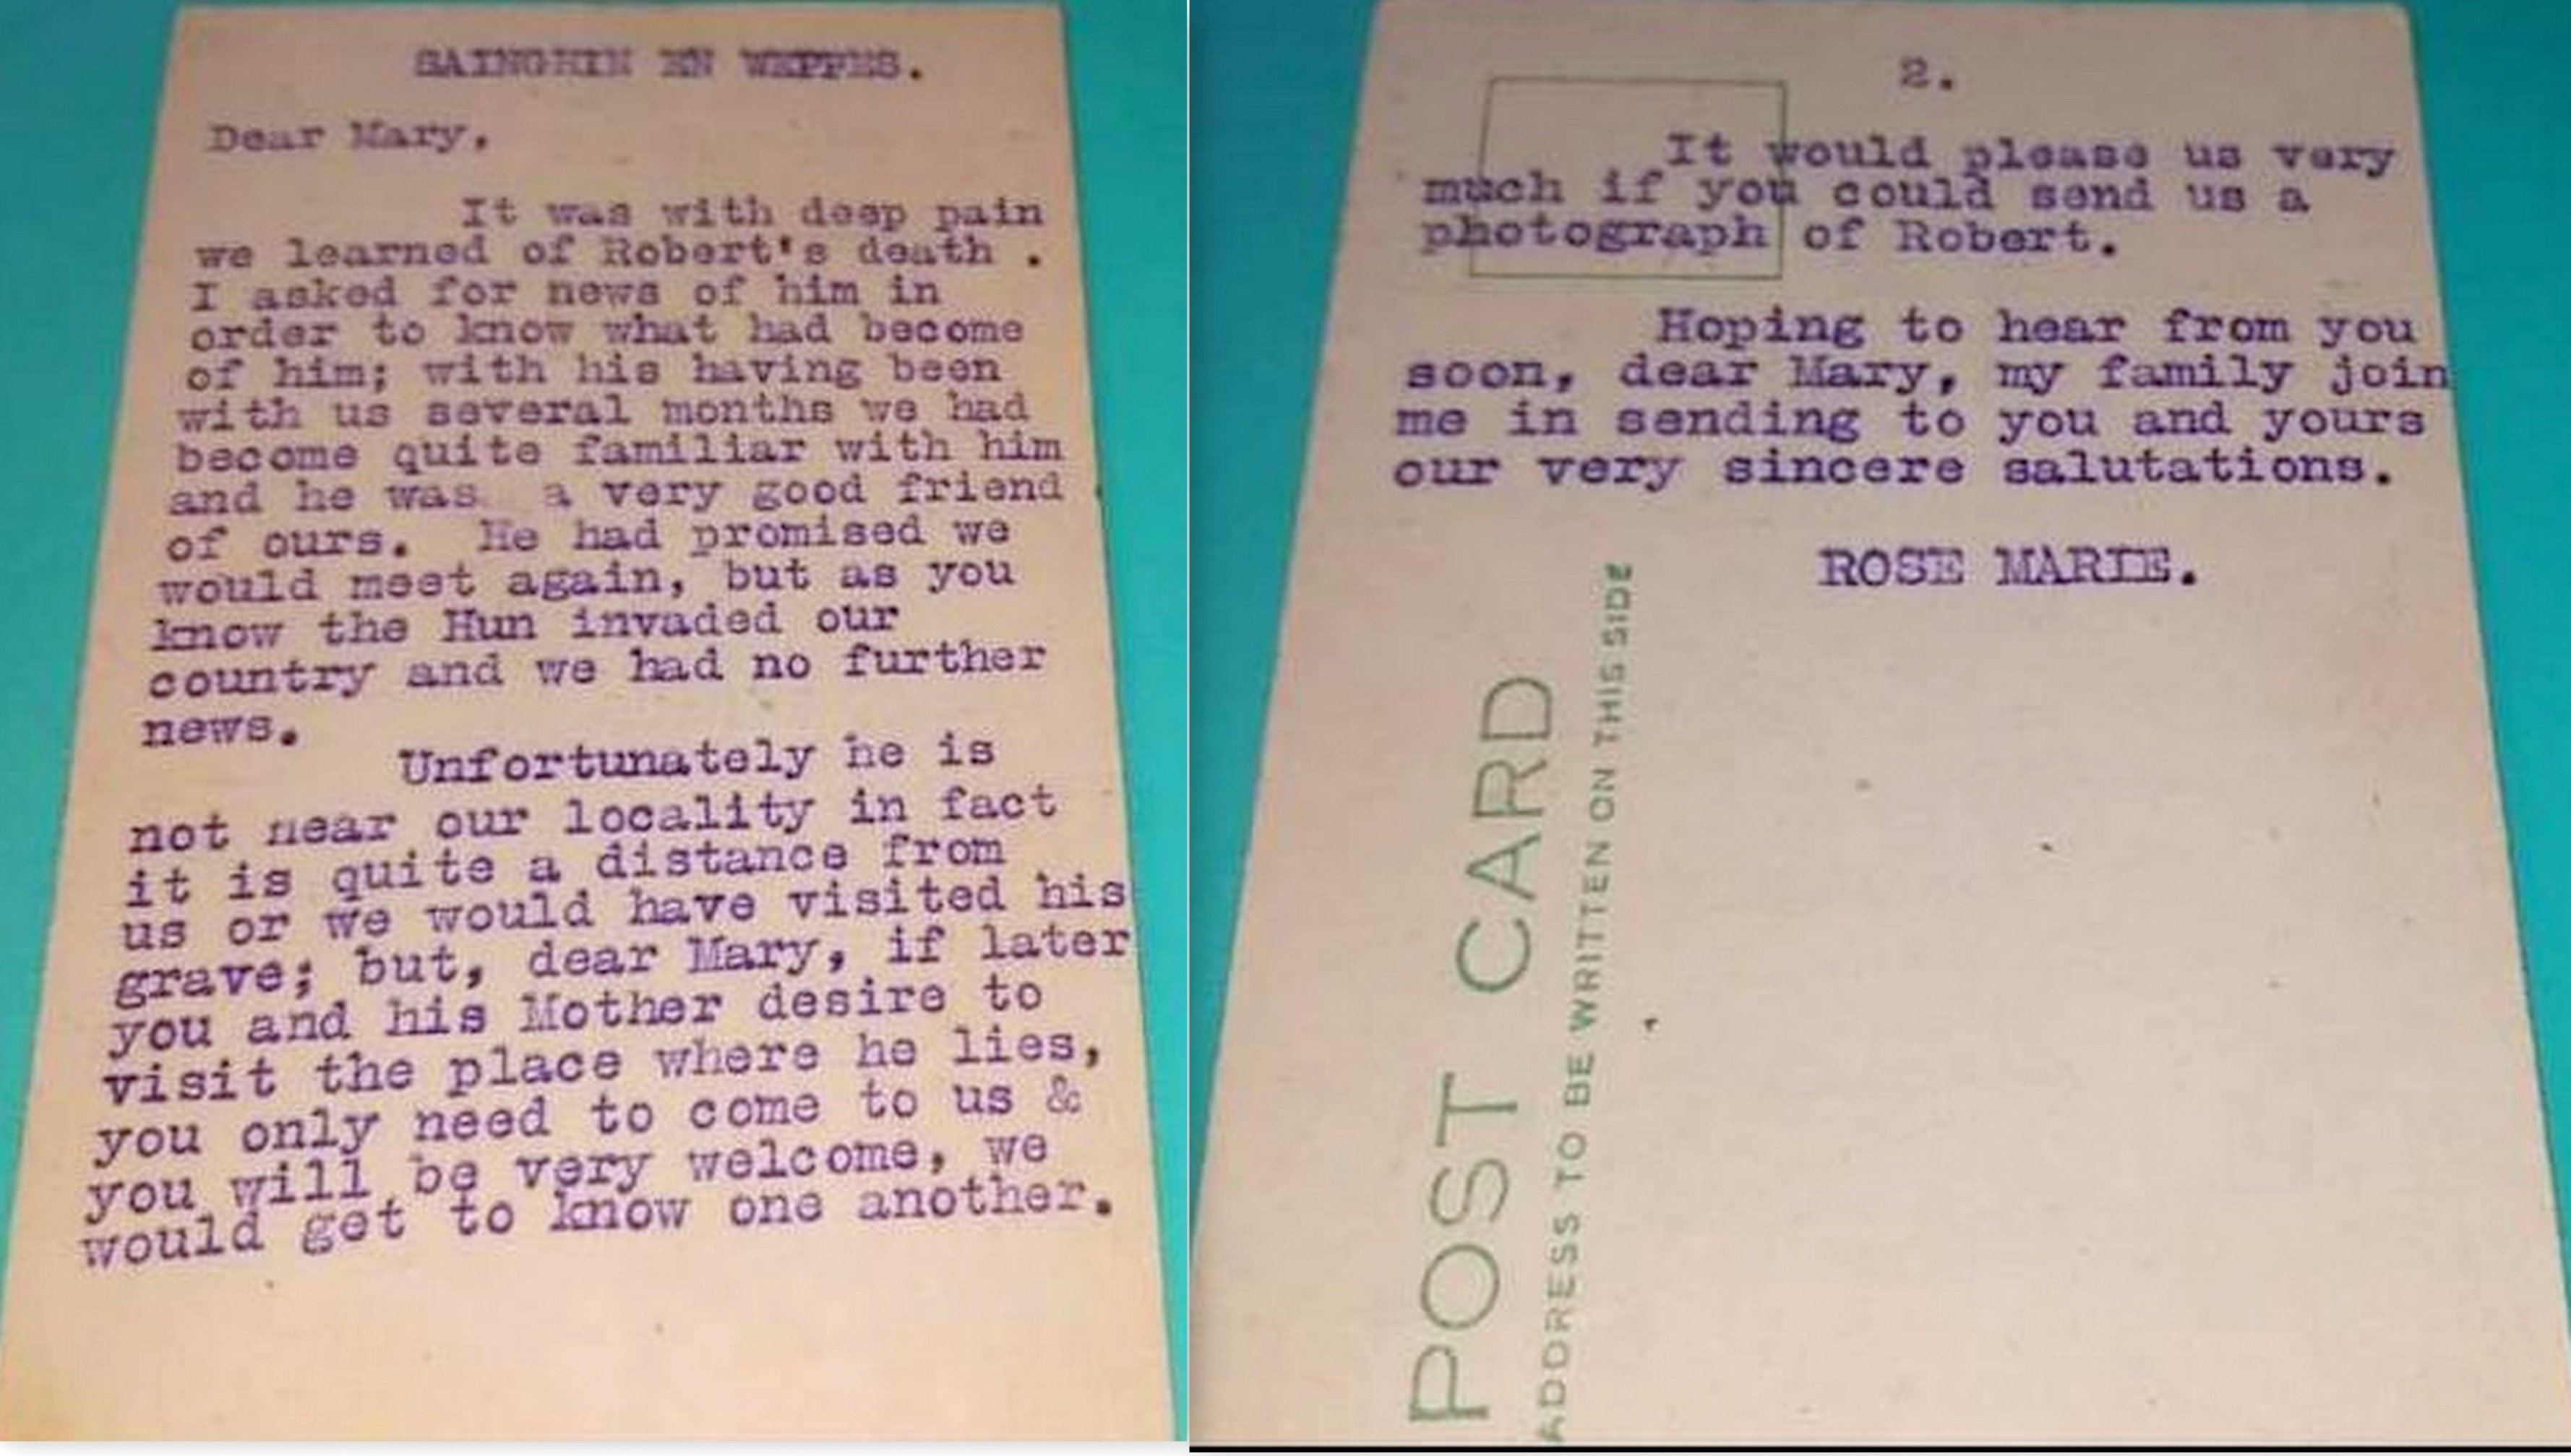 SAINGHIN EN WEPPES.
Dear Mary,
It was with deep pain
we learned of Robert's death .
I asked for news of him in
order to know what had become
of him; with his having been
with us several months we had
become quite familiar with him
and he was a very good friend
of ours. He had promised we
would meet again, but as you
know the Hun invaded our
country and we had no further
news.
Unfortunately he is
not near our locality in fact
it is quite a distance from
us or we would have visited his
grave; but, dear Mary, if later
you and his Mother desire to
visit the place where he lies,
you only need to come to us &
you will be very welcome, we
would get to know one another.
2.
It would please us very
much if you could send us a
photograph of Robert.
Hoping to hear from you
soon, dear Mary, my family join
me in sending to you and yours
our very sincere salutations.
ROSE MARIE.
POST CARD
ADDRESS TO BE WRITTEN ON THIS SIDE